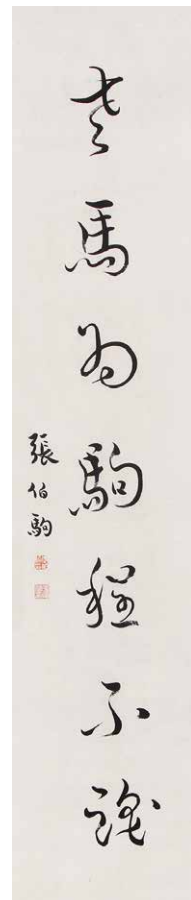 老馬為駒程不識
張伯駒